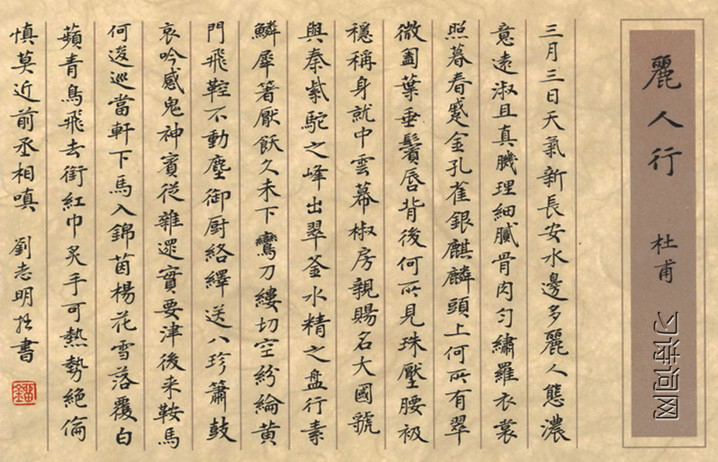 麗人行
杜甫
习诗词网
三月三日天氣新長安水邊多麗人態濃
意遠淑且真理細膩骨肉勻繡羅衣裳
照暮春蹙金孔雀銀麒麟頭上何所有翠
微㔩葉垂鬢唇背後何所見珠壓腰衱
穩稱身就中雲幕椒房親賜名大國虢
與秦紫駝之峰出翠釜水精之盤行素
鱗犀箸厭飫久未下鸞刀縷切空紛綸黃
門飛鞚不動塵御厨絡繹送八珍簫鼓
哀吟感鬼神賓從雜遝實要津後来鞍馬
何逡巡當軒下馬入錦茵楊花雪落覆白
蘋青鳥飛去銜紅巾炙手可熱勢絕倫
慎莫近前丞相嗔 劉志明拙書